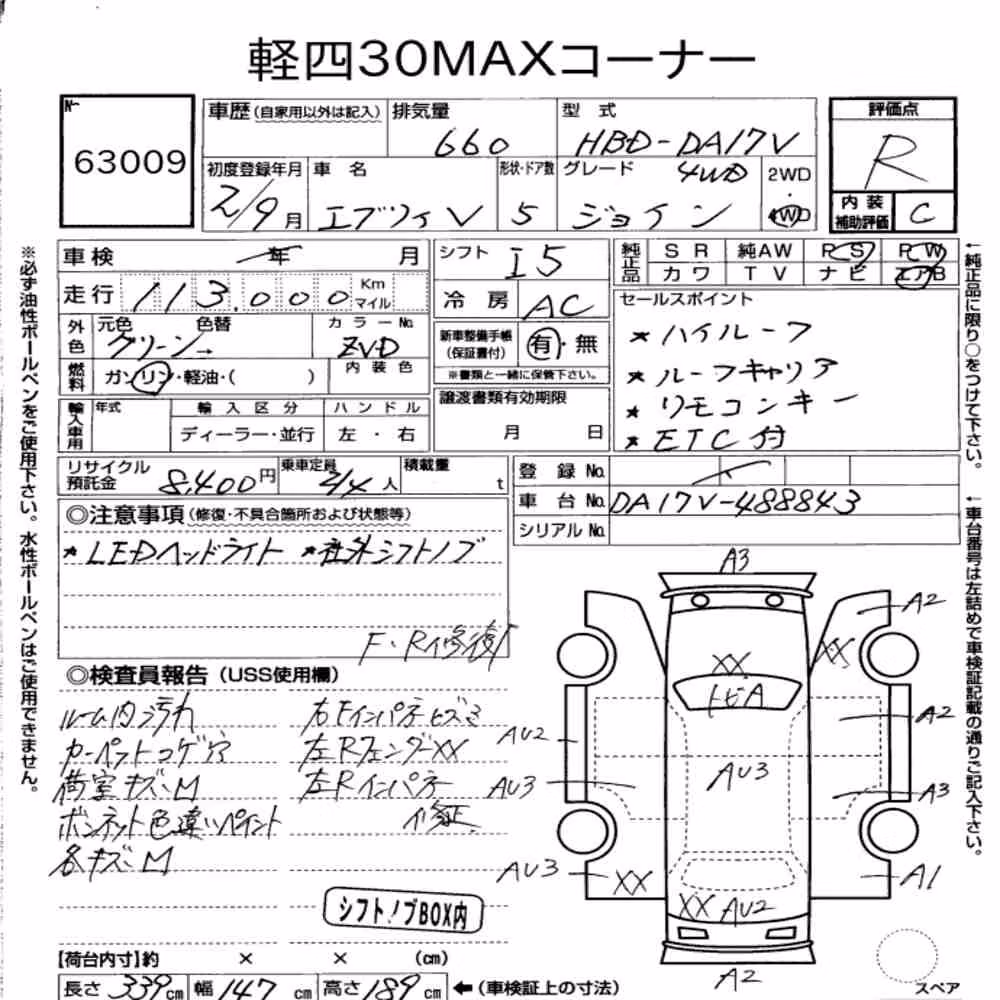 軽四30MAXコーナー
No 63009
車歴(自家用以外は記入) 排気量 660 型式 HBD-DA17V 評価点 R
初度登録年月 2/9月 車名 エブリィV 形状・ドア数 5 グレード ジョイン 4WD 2WD 4WD 内装補助評価 C
車検 年 月 シフト I5 純正品 SR 純AW PS PW
走行 113,000 Km マイル 冷房 AC カワ TV ナビ エアB
外色 元色 グリーン→ 色替 カラーNo. ZVD 内装色
新車整備手帳(保証書付) 有・無
※書類と一緒に保管下さい。
燃料 ガソリン・軽油・( )
セールスポイント
★ハイルーフ
★ルーフキャリア
★リモコンキー
★ETC付
輸入車用 年式 輸入区分 ディーラー・並行 ハンドル 左・右
譲渡書類有効期限 月 日
リサイクル預託金 8,400円 乗車定員 2/4人 積載量 t
登録No.
車台No. DA17V-488843
シリアルNo.
◎注意事項(修復・不具合箇所および状態等)
★LEDヘッドライト ★社外シフトノブ
F・Rイ修復
◎検査員報告(USS使用欄)
ルーム内汚れ
カーペットコゲ穴
荷室キズM
ボンネット色違いペイント
各キズM
右Fインパネヒズミ
左RフェンダーXX
左Rインパネ
イ修正
シフトノブBOX内
A3
A2
XX
XX
トビA
A2
AU2
AU3
AU3
A3
AU3
XX
A1
XX AU2
A2
スペア
【荷台内寸】約 × × (cm)
長さ 339cm 幅 147cm 高さ 189cm ←(車検証上の寸法)
※必ず油性ボールペンをご使用下さい。水性ボールペンはご使用できません。
←純正品に限り○をつけて下さい。
←車台番号は左詰めで車検証記載の通りご記入下さい。